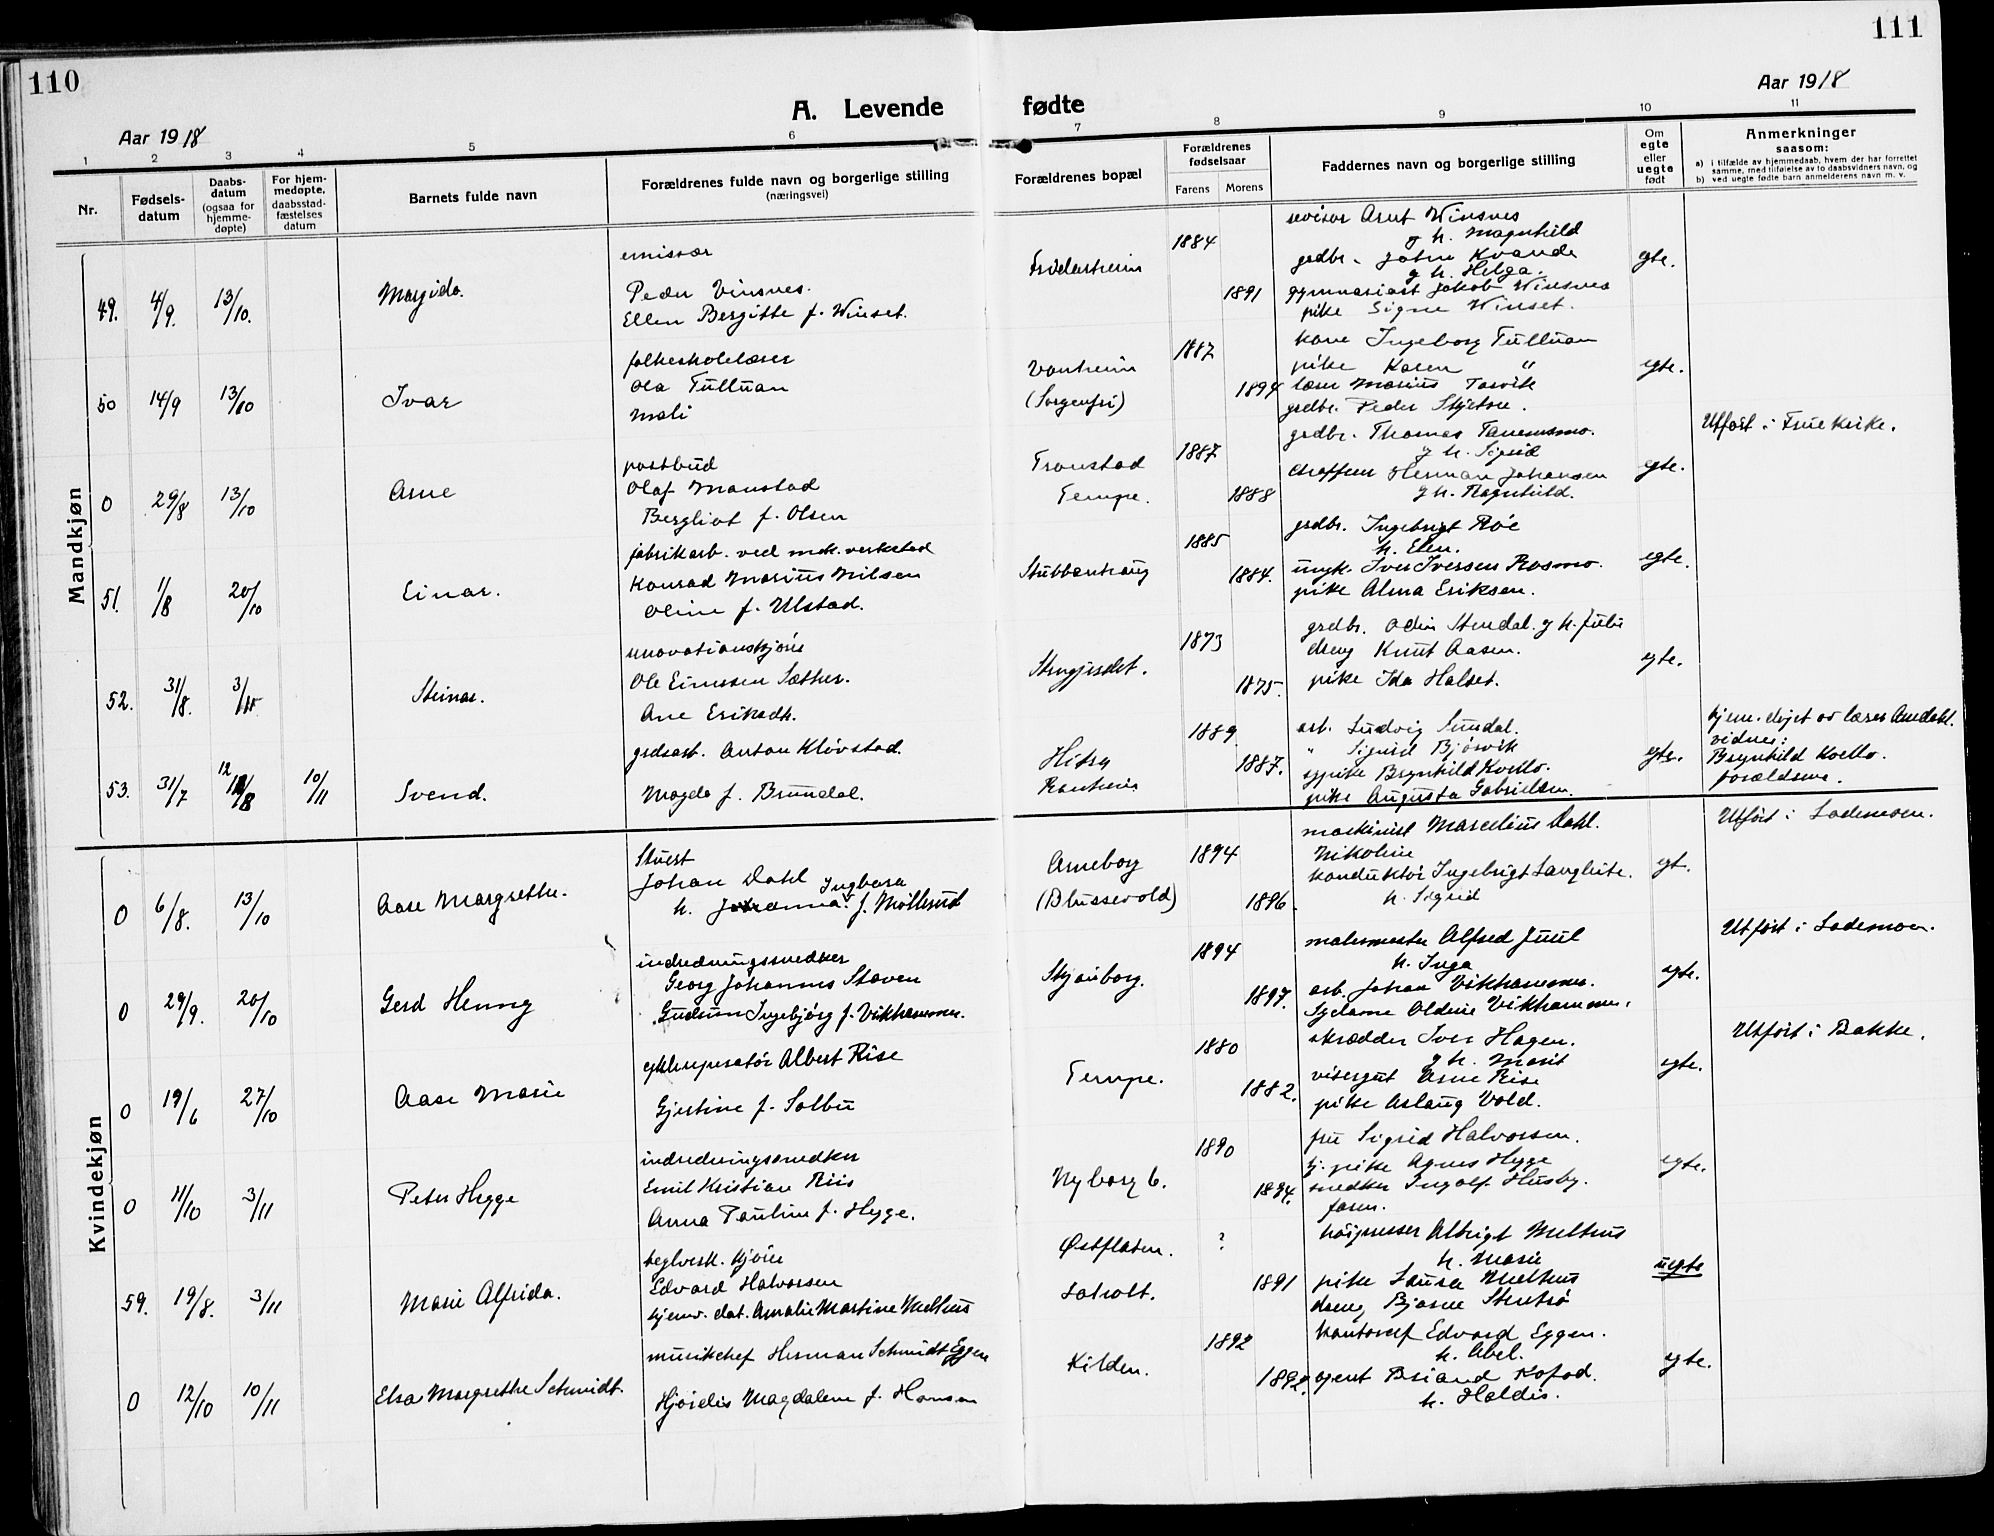 110
111
A. Levende fødte
Aar 1918
Aar 1918
1 2 3 4 5 6 7 8 9 10 11
Nr.
Fødsels-
datum
Daabs-
datum
(ogsaa for
hjemme-
døpte)
For hjem-
medøpte,
daabsstad-
fæstelses
datum
Barnets fulde navn
Forældrenes fulde navn og borgerlige stilling
(næringsvei)
Forældrenes bopæl
Forældrenes
fødselsaar
Farens Morens
Faddernes navn og borgerlige stilling
Om
egte
eller
uegte
født
Anmerkninger
saasom:
a) i tilfælde av hjemmedaab, hvem der har forrettet
samme, med tilføielse av to daabsvidners navn, og
b) ved uegte fødte barn anmelderens navn m. v.
Mandkjøn
49. 4/9. 13/10. Margido.
emissær
Peder Vinsnes.
Ellen Bergitte f. Winset.
1884
1891
revisor Arnt Winsnes
g h. Magnhild
grdbr. John Kvande
g h. Helga.
gymnasiast Jakob Winsnes
pike Signe Winset.
egte.
50 14/9 13/10 Ivar
folkeskolelærer
Ola Tulluan
Mali
Vonheim
(Sorgenfri)
1887
1894
kone Ingeborg Tulluan
pike Karen "
lærer Marius Torvik
grdbr. Peder Skjetne.
egte.
0 29/8 13/10 Arne
postbud
Olaf Monstad
Bergliot f. Olsen
Tronstad
Tempe.
1887
1888
grdbr. Thomas Tanemsmo.
g h. Sigrid
chaffeur Herman Johansen
g h. Ragnhild.
egte.
Utført i Frue kirke.
51. 1/8 20/10 Einar.
fabrikarb. ved mek. verksted
Konrad Marius Nilsen
Oline f. Ulstad.
Stubbanhaug
1885
1884.
grdbr. Ingebrigt Røe
h. Elen.
ungk. Iver Iversen Rosmo.
pike Alma Eriksen.
egte.
52. 31/8. 3/11. Steinar.
renovationskjører
Ole Einersen Sæther.
Ane Eriksdtr.
Stengjerdet.
1873
1875.
grdbr. Odin Stendal. g h. Julie
dreng Knut Aasen.
pike Ida Halset.
egte.
53. 31/7 12/8 10/11 Svend.
grdsarb. Anton Kløvstad.
Magda f. Brundal.
Hitra
Ranheim
1889
1887.
arb. Ludvig Sundal.
" Sigurd Bjørvik
sypike Brynhild Kvello.
pike Augusta Gabrielsen.
egte.
hjem. døpt av lærer Amdahl.
vidner.
Brynhild Kvello.
forældrene.
Kvindekjøn
0 6/8. 13/10 Aase Margrethe.
Stuert
Johan Dahl
Ingbora
h. Johanna f. Møllerud
Arneborg
(Blussevold)
1894
1896.
maskinist Marcelius Dahl.
Nikoline
konduktør Ingebrigt Langlete.
h. Sigrid
egt.
Utført i Lademoen.
0 29/9. 20/10 Gerd Henny
indredningssnedker
Georg Johannes Staven
Gudrun Ingebjørg f. Vikhammer.
Skjønborg.
1894
1897.
malermester Alfred Juul
h. Inga
arb. Johan Vikhammer.
Sydame Oldine Vikhammer.
egte.
Utført i Lademoen.
0 19/6 27/10 Aase Marie
cykkelreparatør Albert Rise
Gjertine f. Solbu
Tempe.
1880
1882.
skrædder Iver Hagen.
g h. Marit
visergut Arne Rise
pike Aslaug Vold.
egte.
Utført i Bakke.
0 11/10 3/11 Peter Hygge
indredningssnedker
Emil Kristian Riis
Anna Pauline f. Hygge.
Nyborg 6.
1890
1894.
fru Sigrid Halvorsen.
tj. pike Agnes Hygge
snedker Ingolf Husby.
faren.
egte.
59. 19/8. 3/11 Marie Alfrida.
teglverk. kjører
Edvard Halvorsen
hjemv. dat. Amalie Martine Melhus
Østflaten.
Loholt.
?
1891
Albrigt Melhus
h. Marie
pike Laura Melhus
dreng Bjarne Stentrø
uegte
0 12/10 10/11 Elsa Margrethe Schmidt.
musikchef Herman Schmidt Eggen
Hjørdis Magdalene f. Hansen
Kilden.
1892
1892.
kontorchef Edvard Eggen.
h. Abel.
agent Briand Kofod.
h. Haldis.
egte.